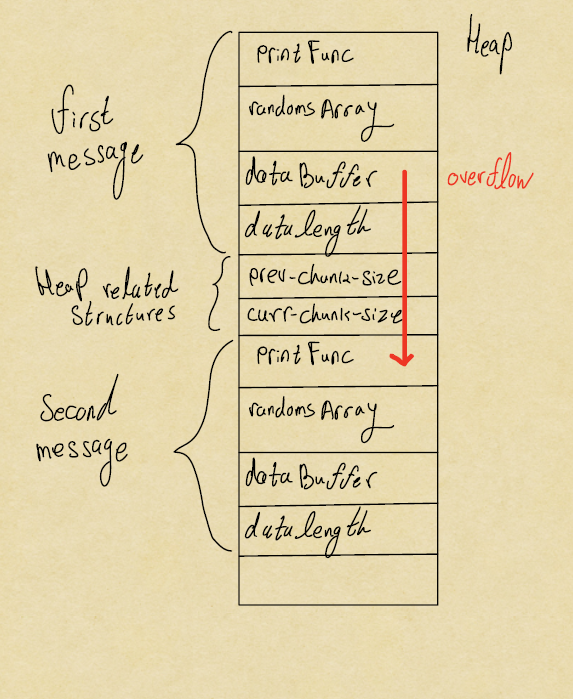 Heap
first
message
printFunc
randomsArray
dataBuffer
overflow
datalength
Heap related
structures
prev-chunk-size
curr-chunk-size
Second
message
printFunc
randomsArray
dataBuffer
datalength